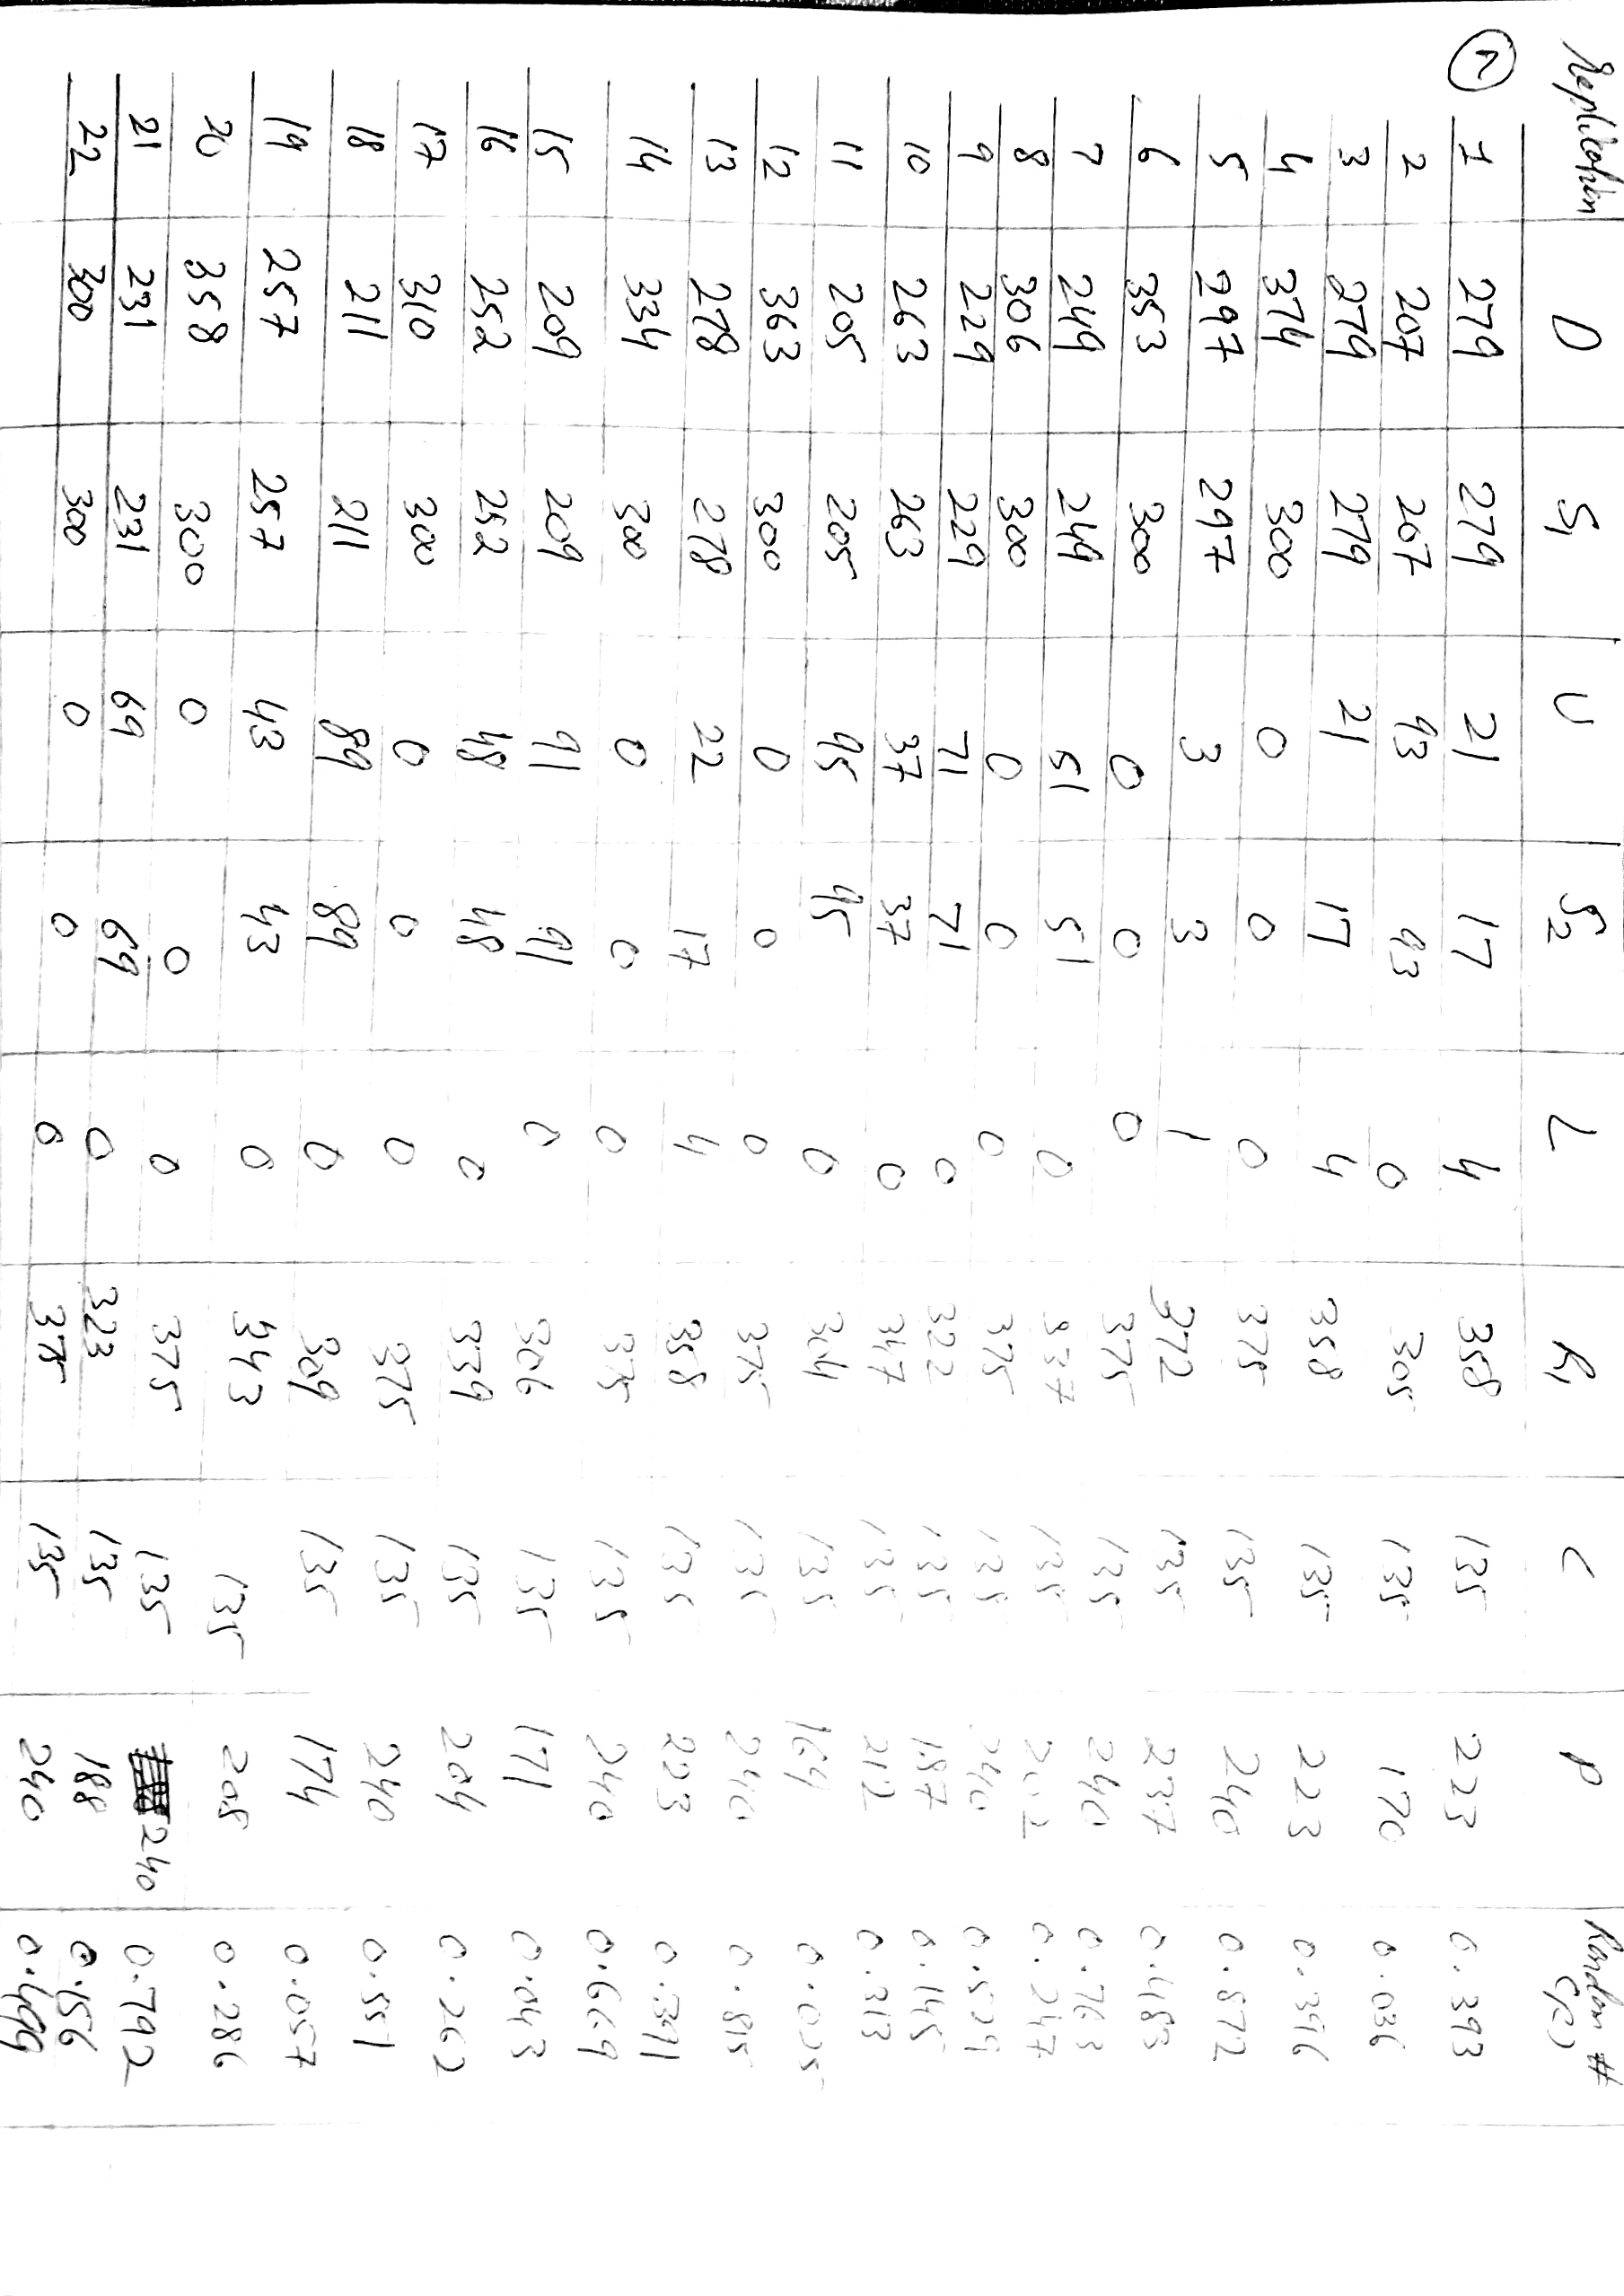 Replication D S₁ U S₂ L R₁ C P Random # (R)
N 1 279 279 21 17 4 358 135 223 0.393
2 207 207 93 93 0 305 135 170 0.036
3 279 279 21 17 4 358 135 223 0.396
4 374 300 0 0 0 375 135 240 0.872
5 297 297 3 3 1 372 135 237 0.483
6 353 300 0 0 0 375 135 240 0.763
7 249 249 51 51 0 337 135 202 0.247
8 306 300 0 0 0 375 135 240 0.529
9 229 229 71 71 0 322 135 187 0.145
10 263 263 37 37 0 347 135 212 0.313
11 205 205 95 95 0 304 135 169 0.025
12 363 300 0 0 0 375 135 240 0.815
13 278 278 22 17 4 358 135 223 0.391
14 334 300 0 0 0 375 135 240 0.669
15 209 209 91 91 0 306 135 171 0.043
16 252 252 48 48 0 339 135 204 0.262
17 310 300 0 0 0 375 135 240 0.551
18 211 211 89 89 0 309 135 174 0.057
19 257 257 43 43 0 343 135 208 0.286
20 358 300 0 0 0 375 135 240 0.792
21 231 231 69 69 0 323 135 188 0.156
22 300 300 0 0 0 375 135 240 0.499